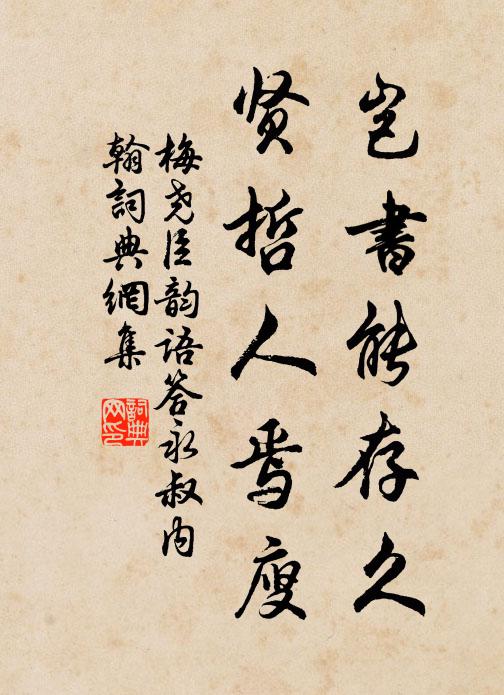 岂書能存久
贤哲人焉廋
梅尧臣韵语答永叔内
翰詞典網集
詞典
网印